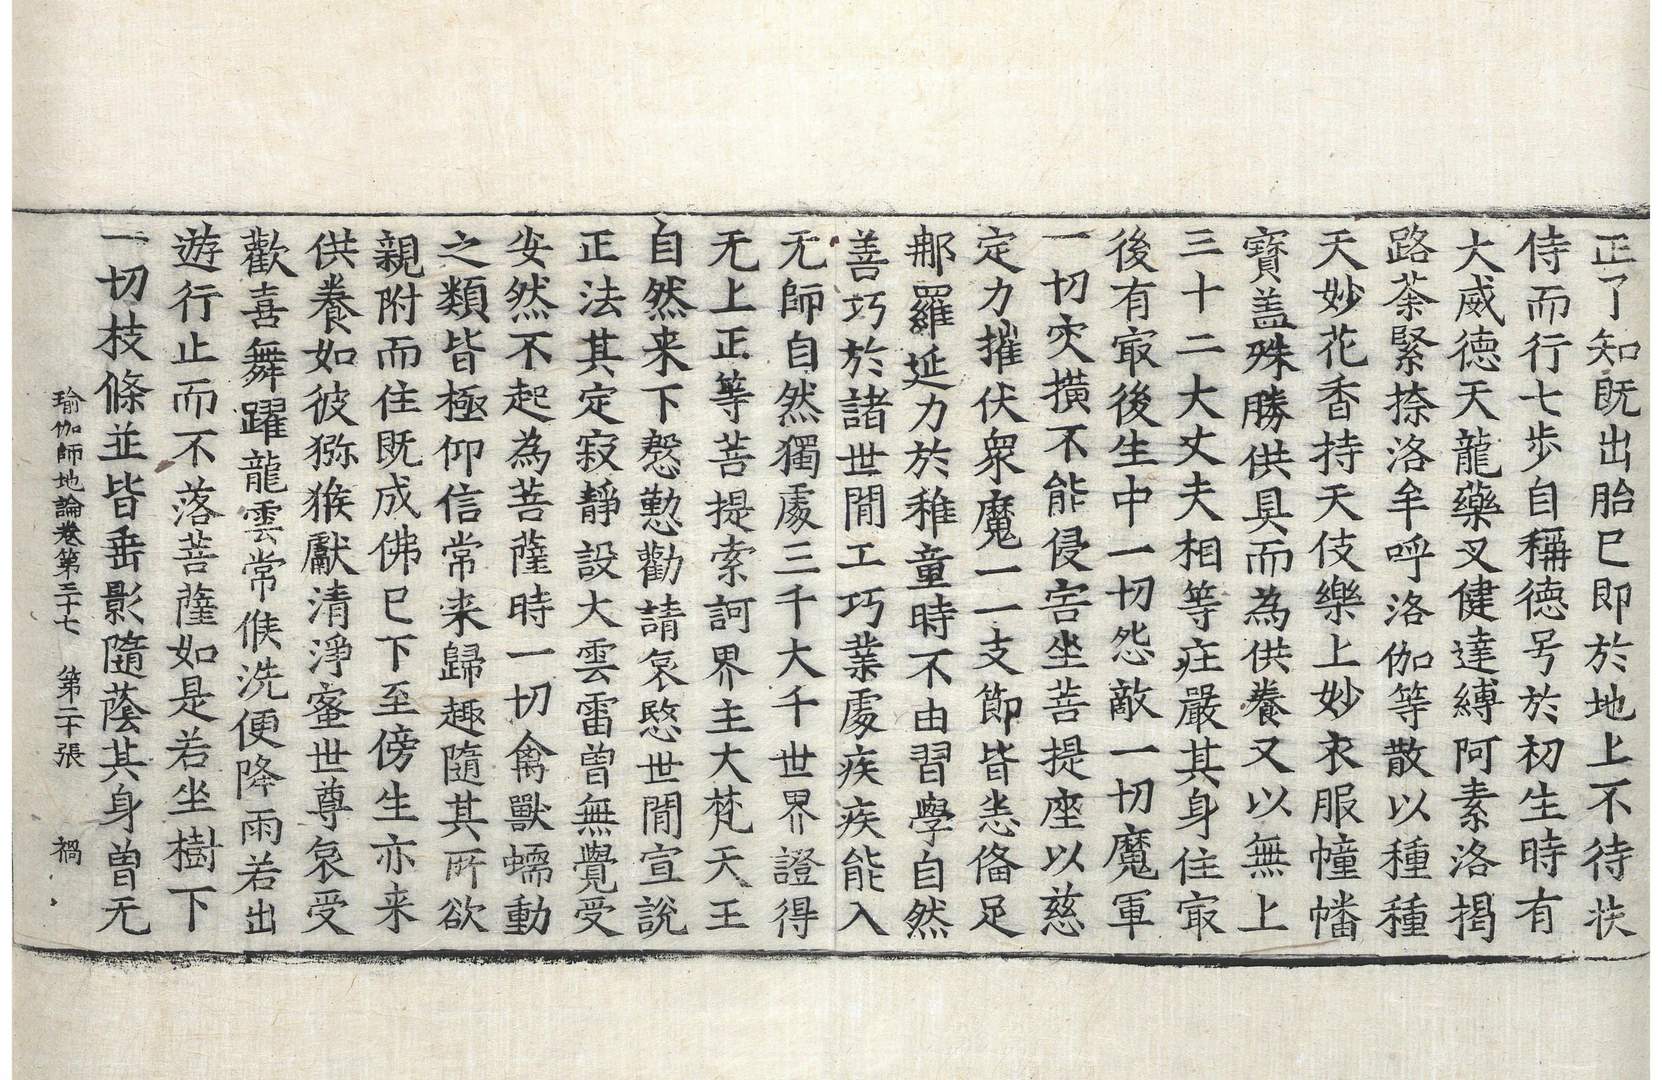 正了知既出胎已即於地上不待扶
侍而行七步自稱德号於初生時有
大威德天龍藥叉健達縛阿素洛揭
路荼緊捺洛牟呼洛伽等散以種種
天妙花香持天伎樂上妙衣服幢幡
寶盖殊勝供具而為供養又以無上
三十二大丈夫相等症嚴其身住㝡
後有㝡後生中一切怨敵一切魔軍
一切灾橫不能侵害坐菩提座以慈
定力摧伏衆魔一一支節皆悉俻足
那羅延力於稚童時不由習學自然
善巧於諸世間工巧業處疾疾能入
无師自然獨處三千大千世界證得
无上正等菩提索訶界主大梵天王
自然来下慇懃勸請哀愍世間宣說
正法其定寂靜設大雲雷曾無覺受
安然不起為菩薩時一切禽獸蠕動
之類皆極仰信常来歸趣隨其所欲
親附而住既成佛已下至傍生亦来
供養如彼獼猴獻清淨蜜世尊哀受
歡喜舞躍龍雲常候洗便降雨若出
遊行止而不落菩薩如是若坐樹下
一切枝條並皆垂影隨蔭其身曾无
瑜伽師地論卷第三十七 第二十張 禍